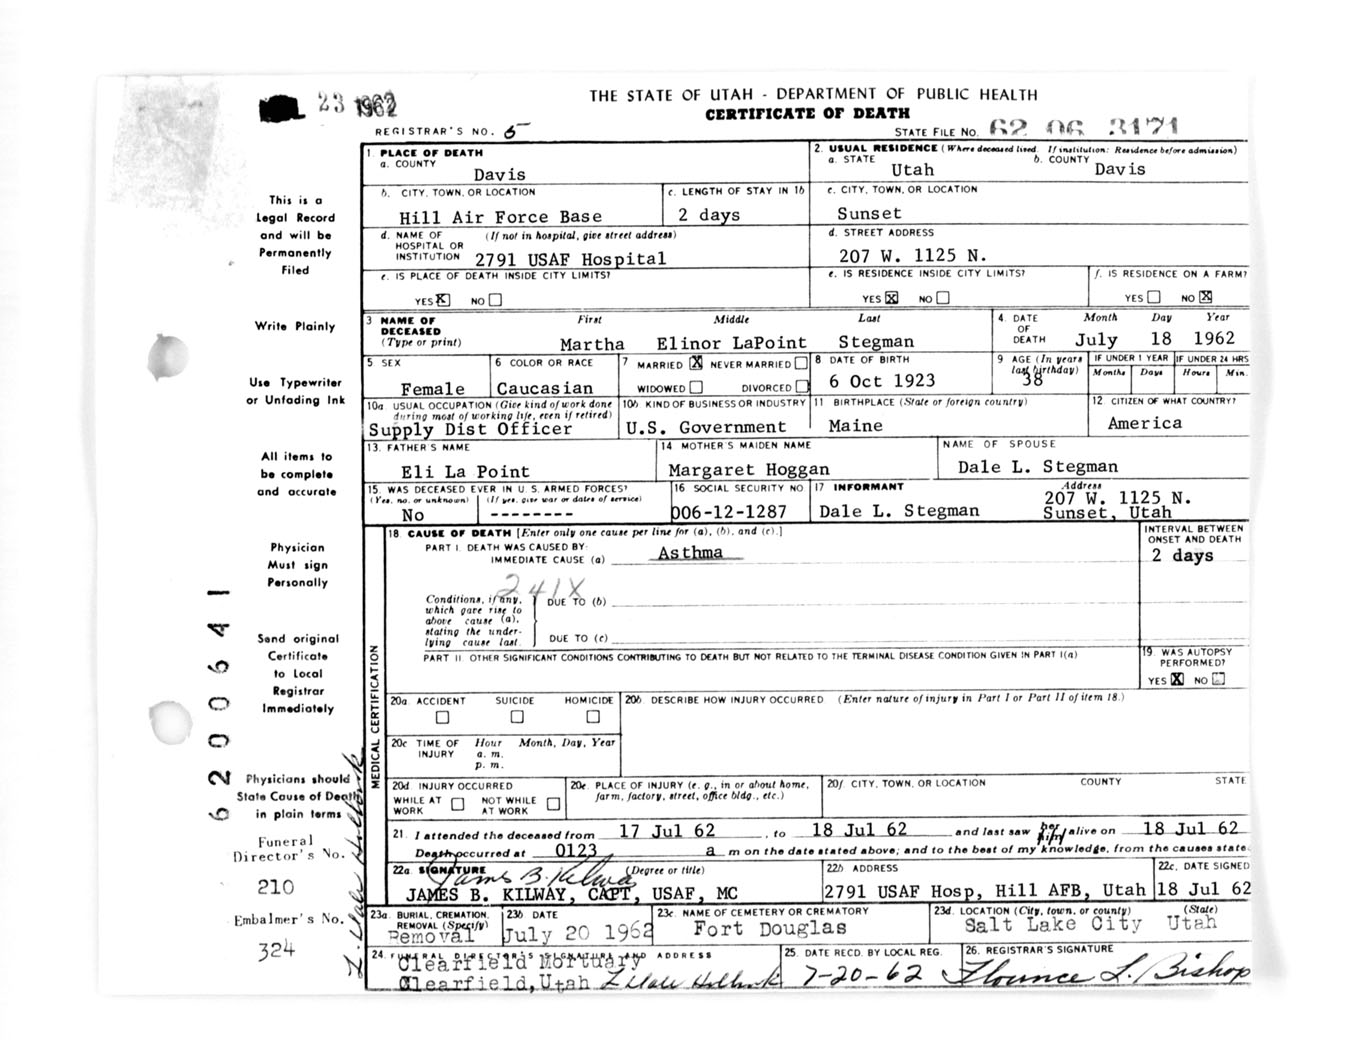 23 1962
THE STATE OF UTAH - DEPARTMENT OF PUBLIC HEALTH
CERTIFICATE OF DEATH
REGISTRAR'S NO. 5
STATE FILE NO. 62 06 3171
This is a
Legal Record
and will be
Permanently
Filed
Write Plainly
Use Typewriter
or Unfading Ink
All items to
be complete
and accurate
Physician
Must sign
Personally
Send original
Certificate
to Local
Registrar
Immediately
Physicians should
State Cause of Death
in plain terms
Funeral
Director's No.
210
Embalmer's No.
324
L. Dale Holbrook
6200641
1. PLACE OF DEATH
a. COUNTY
Davis
2. USUAL RESIDENCE (Where deceased lived. If institution: Residence before admission)
a. STATE Utah b. COUNTY Davis
b. CITY, TOWN, OR LOCATION
Hill Air Force Base
c. LENGTH OF STAY IN 1b
2 days
c. CITY, TOWN, OR LOCATION
Sunset
d. NAME OF HOSPITAL OR INSTITUTION (If not in hospital, give street address)
2791 USAF Hospital
d. STREET ADDRESS
207 W. 1125 N.
e. IS PLACE OF DEATH INSIDE CITY LIMITS?
YES X NO
e. IS RESIDENCE INSIDE CITY LIMITS?
YES X NO
f. IS RESIDENCE ON A FARM?
YES NO X
3 NAME OF DECEASED (Type or print) First Middle Last
Martha Elinor LaPoint Stegman
4. DATE OF DEATH Month Day Year
July 18 1962
5 SEX
Female
6 COLOR OR RACE
Caucasian
7 MARRIED X NEVER MARRIED
WIDOWED DIVORCED
8 DATE OF BIRTH
6 Oct 1923
9 AGE (In years last birthday)
38
IF UNDER 1 YEAR
Months Days
IF UNDER 24 HRS
Hours Min.
10a. USUAL OCCUPATION (Give kind of work done during most of working life, even if retired)
Supply Dist Officer
10b. KIND OF BUSINESS OR INDUSTRY
U.S. Government
11 BIRTHPLACE (State or foreign country)
Maine
12. CITIZEN OF WHAT COUNTRY?
America
13. FATHER'S NAME
Eli La Point
14 MOTHER'S MAIDEN NAME
Margaret Hoggan
NAME OF SPOUSE
Dale L. Stegman
15. WAS DECEASED EVER IN U.S. ARMED FORCES?
(Yes, no, or unknown) (If yes, give war or dates of service)
No --------
16 SOCIAL SECURITY NO.
006-12-1287
17 INFORMANT Address
Dale L. Stegman
207 W. 1125 N.
Sunset, Utah
MEDICAL CERTIFICATION
18. CAUSE OF DEATH [Enter only one cause per line for (a), (b), and (c).]
PART I. DEATH WAS CAUSED BY:
IMMEDIATE CAUSE (a) Asthma
INTERVAL BETWEEN
ONSET AND DEATH
2 days
241X
Conditions, if any,
which gave rise to
above cause (a),
stating the under-
lying cause last.
DUE TO (b)
DUE TO (c)
PART II. OTHER SIGNIFICANT CONDITIONS CONTRIBUTING TO DEATH BUT NOT RELATED TO THE TERMINAL DISEASE CONDITION GIVEN IN PART I(a)
19. WAS AUTOPSY
PERFORMED?
YES X NO
20a. ACCIDENT SUICIDE HOMICIDE
20b. DESCRIBE HOW INJURY OCCURRED (Enter nature of injury in Part I or Part II of item 18.)
20c TIME OF INJURY Hour Month, Day, Year
a. m.
p. m.
20d. INJURY OCCURRED
WHILE AT WORK NOT WHILE AT WORK
20e. PLACE OF INJURY (e. g., in or about home, farm, factory, street, office bldg., etc.)
20f. CITY, TOWN, OR LOCATION COUNTY STATE
21. I attended the deceased from 17 Jul 62, to 18 Jul 62 and last saw her him alive on 18 Jul 62
Death occurred at 0123 a m on the date stated above; and to the best of my knowledge, from the causes state
22a. SIGNATURE (Degree or title)
James B. Kilway
JAMES B. KILWAY, CAPT, USAF, MC
22b ADDRESS
2791 USAF Hosp, Hill AFB, Utah
22c. DATE SIGNED
18 Jul 62
23a. BURIAL, CREMATION, REMOVAL (Specify)
Removal
23b DATE
July 20 1962
23c. NAME OF CEMETERY OR CREMATORY
Fort Douglas
23d. LOCATION (City, town, or county) (State)
Salt Lake City Utah
24. FUNERAL DIRECTOR'S SIGNATURE AND ADDRESS
Clearfield Mortuary
Clearfield, Utah L Dale Holbrook
25. DATE RECD. BY LOCAL REG.
7-20-62
26. REGISTRAR'S SIGNATURE
Flounce L. Bishop